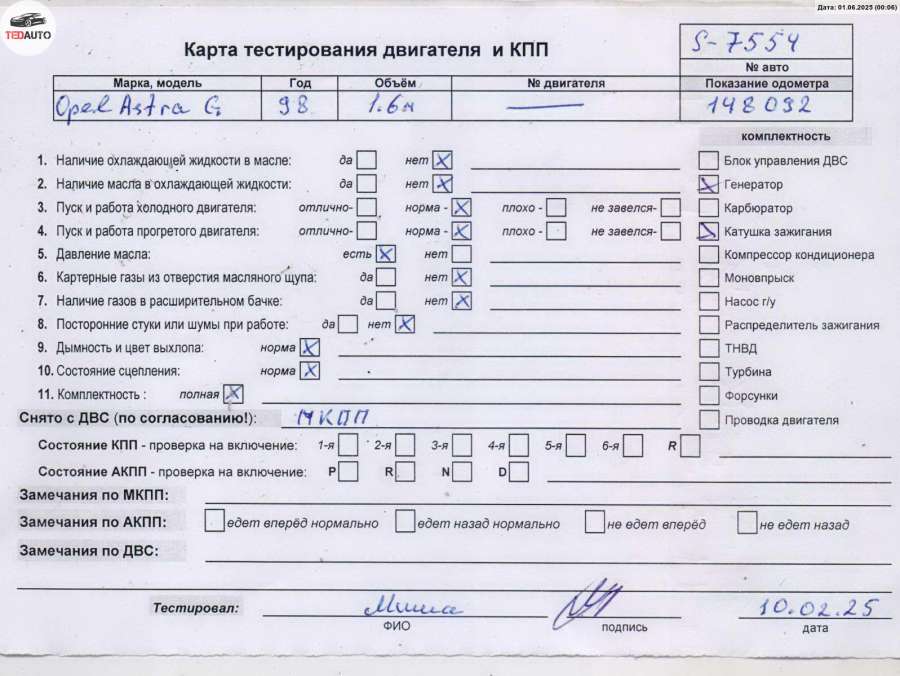 Дата: 01.06.2025 (00:06)
TEDAUTO
Карта тестирования двигателя и КПП
S-7554
№ авто
Марка, модель Год Объём № двигателя Показание одометра
Opel Astra G 98 1.6м 148 092
комплектность
1. Наличие охлаждающей жидкости в масле: да нет X Блок управления ДВС
2. Наличие масла в охлаждающей жидкости: да нет X Генератор
3. Пуск и работа холодного двигателя: отлично- норма - X плохо - не завелся- Карбюратор
4. Пуск и работа прогретого двигателя: отлично- норма - X плохо - не завелся- Катушка зажигания
5. Давление масла: есть X нет Компрессор кондиционера
6. Картерные газы из отверстия масляного щупа: да нет X Моновпрыск
7. Наличие газов в расширительном бачке: да нет X Насос г/у
8. Посторонние стуки или шумы при работе: да нет X Распределитель зажигания
9. Дымность и цвет выхлопа: норма X ТНВД
10. Состояние сцепления: норма X Турбина
11. Комплектность : полная X Форсунки
Снято с ДВС (по согласованию!): МКПП Проводка двигателя
Состояние КПП - проверка на включение: 1-я 2-я 3-я 4-я 5-я 6-я R
Состояние АКПП - проверка на включение: P R N D
Замечания по МКПП:
Замечания по АКПП: едет вперёд нормально едет назад нормально не едет вперёд не едет назад
Замечания по ДВС:
Тестировал: Миша 10.02.25
ФИО подпись дата